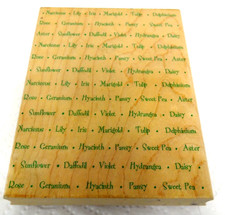 Narcissus • Lily • Iris • Marigold • Tulip • Delphinium
Rose • Geranium • Hyacinth • Pansy • Sweet Pea • Aster
Sunflower • Daffodil • Violet • Hydrangea • Daisy
Narcissus • Lily • Iris • Marigold • Tulip • Delphinium
Rose • Geranium • Hyacinth • Pansy • Sweet Pea • Aster
Sunflower • Daffodil • Violet • Hydrangea • Daisy
Narcissus • Lily • Iris • Marigold • Tulip • Delphinium
Rose • Geranium • Hyacinth • Pansy • Sweet Pea • Aster
Sunflower • Daffodil • Violet • Hydrangea • Daisy
Narcissus • Lily • Iris • Marigold • Tulip • Delphinium
Rose • Geranium • Hyacinth • Pansy • Sweet Pea • Aster
Sunflower • Daffodil • Violet • Hydrangea • Daisy
Rose • Geranium • Hyacinth • Pansy • Sweet Pea •